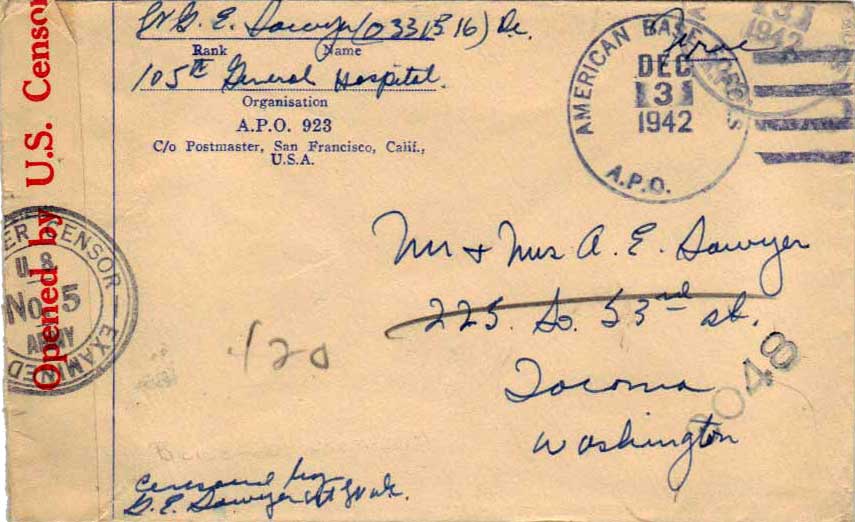 G. E. Sawyer (0331816) Dc.
Rank Name
105th General Hospital.
Organisation
A.P.O. 923
C/o Postmaster, San Francisco, Calif.,
U.S.A.
Free
AMERICAN BASE FORCES
DEC
3
1942
A.P.O.
3
1942
Opened by U.S. Censor
CENSOR
U.S.
No. 5
ARMY
EXAMINED
Mr & Mrs A. E. Sawyer
225 So. 53rd St.
Tacoma
Washington
120
0048
Censored by
G. E. Sawyer